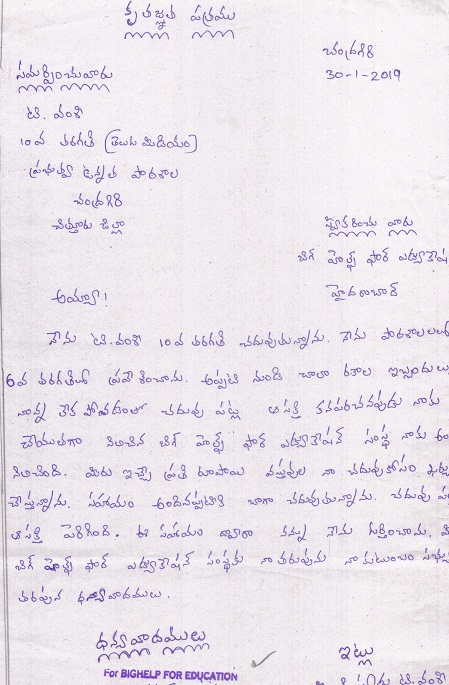 కృతజ్ఞత పత్రము
చంద్రగిరి
30-1-2019
సమర్పించువారు
టి. వంశి
10వ తరగతి (తెలుగు మీడియం)
ప్రభుత్వ ఉన్నత పాఠశాల
చంద్రగిరి
చిత్తూరు జిల్లా
స్వీకరించు వారు
బిగ్ హెల్ప్ ఫార్ ఎడ్యుకేషన్
హైదరాబాద్
అయ్యా!
నేను టి.వంశి 10వ తరగతి చదువుతున్నాను. నేను
6వ తరగతిలో ప్రవేశించాను. అప్పటి నుండి చాలా రకాల ఇబ్బందులు
నాన్న లేక పోవడంలో చదువు పట్ల ఆసక్తి కనపరచనపుడు నాకు
చేయుతగా నిలిచిన బిగ్ హెల్ప్ ఫార్ ఎడ్యుకేషన్ సంస్థ నాకు
నిలిచింది. మీరు ఇచ్చే ప్రతి రూపాయి వస్తువుల నా చదువుకోసం
చేస్తున్నాను. సహాయం అందినప్పటికి బాగా చదువుతున్నాను. చదువు
ఆసక్తి పెరిగింది. ఈ సహాయం ద్వారా నన్ను నేను గుర్తించాను.
బిగ్ హెల్ప్ ఫార్ ఎడ్యుకేషన్ సంస్థకు నా తరుపును నా కుటుంబం
తరపున ధన్యవాదములు.
ధన్యవాదములు
ఇట్లు
For BIGHELP FOR EDUCATION
టి.వంశి